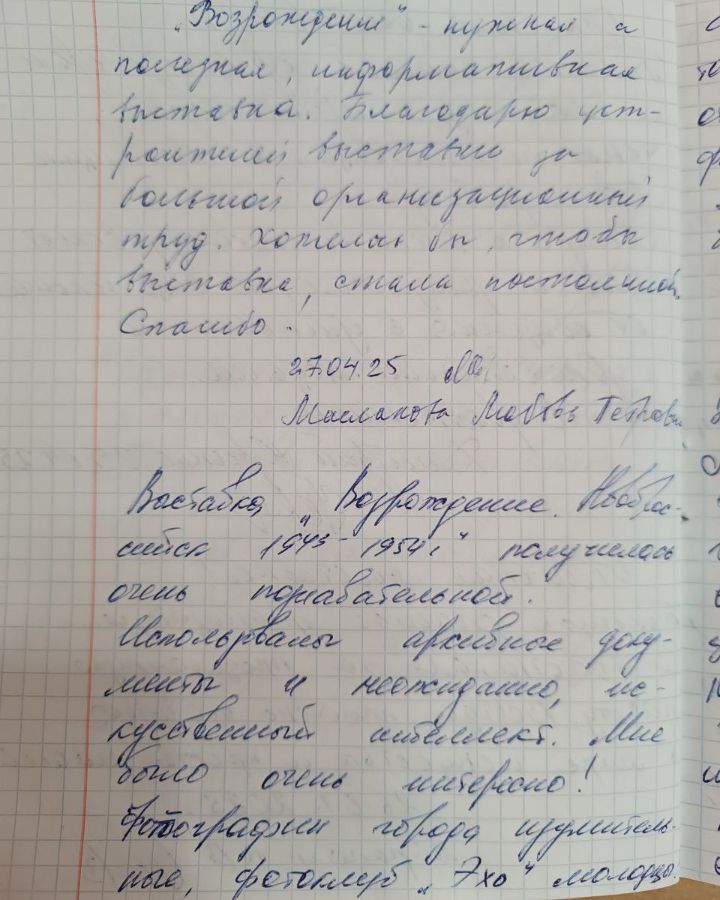 „Возрождение" - нужная и
полезная, информативная
выставка. Благодарю уст-
роителей выставки за
большой организационный
труд. Хотелось бы, чтобы
выставка, стала постоянной.
Спасибо!
27.04.25
Масланова Любовь Петровна
Выставка „Возрождение. Новорос-
сийск 1943-1954г." получилась
очень познавательной.
Использованы архивные доку-
менты и неожиданно, ис-
кусственный интеллект. Мне
было очень интересно!
Фотографии города изумитель-
ные, фотоклуб „Эхо" молодцы.